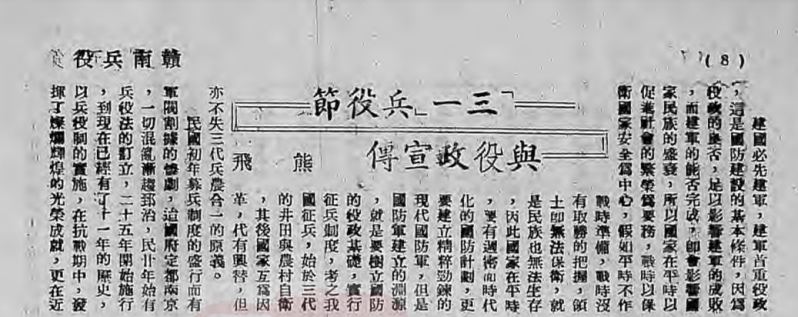 (8)
贛南兵役
「三一」兵役節
與役政宣傳
熊飛
建國必先建軍,建軍首重役政
,這是國防建設的基本條件,因爲
役政的良否,足以影響建軍的成敗
,而建軍的能否完成,卽會影響國
家民族的盛衰,所以國家在平時以
促進社會的繁榮爲要務,戰時以保
衛國家安全爲中心,假如平時不作
戰時準備,戰時沒
有取勝的把握,領
土卽無法保衛,就
是民族也無法生存
,因此國家在平時
,要有適應而時代
化的國防計劃,更
要建立精粹勁鍊的
現代國防軍,但是
國防軍建立的淵源
,就是要樹立國防
的役政基礎,實行
征兵制度,考之我
國征兵,始於三代
的井田與農村自衛
,其後國家互爲因
革,代有興替,但
亦不失三代兵農合一的原義。
民國初年募兵制度的盛行而有
軍閥割據的慘劇,這國府定都南京
,一切混亂漸趨郅治,民廿年始有
兵役法的訂立,二十五年開始施行
,到現在已經有了十一年的歷史,
以兵役制的實施,在抗戰期中,發
揮了燦爛輝煌的光榮成就,更在近